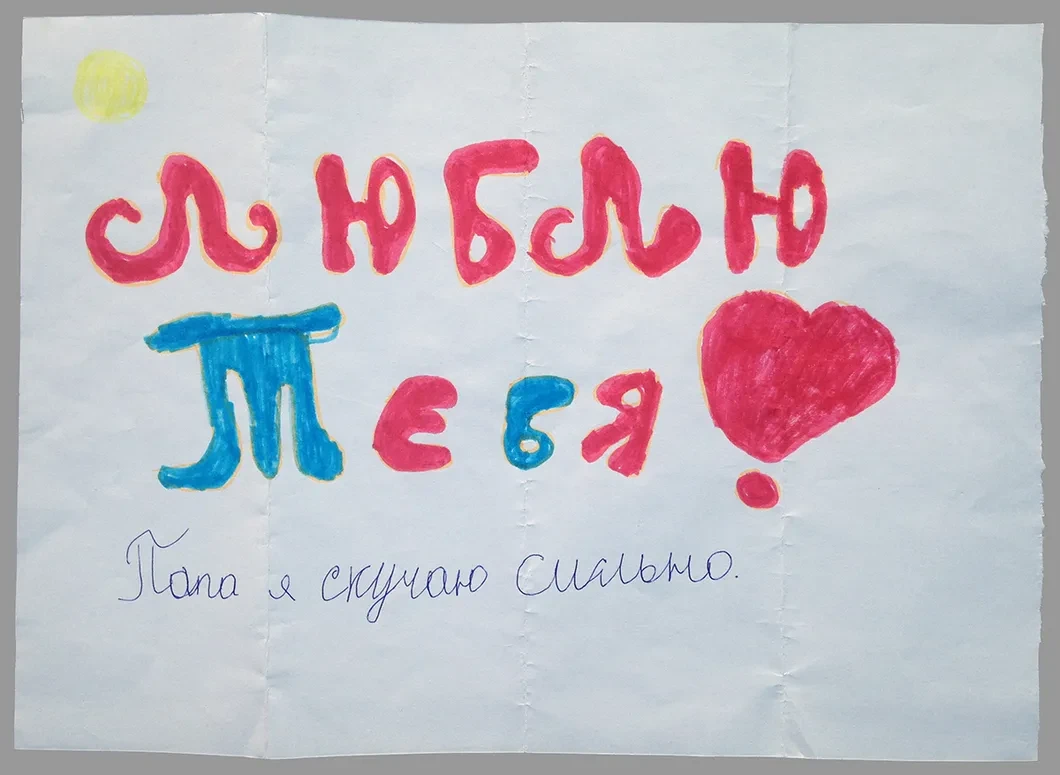 ЛЮБЛЮ
Тебя!
Папа я скучаю сильно.